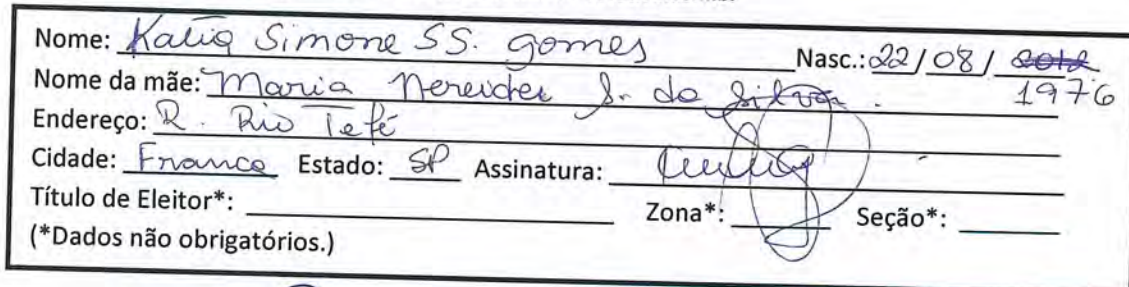 Nome: Katia Simone SS. gomes Nasc.: 22/08/ 2012
Nome da mãe: Maria Nereides S. da Silva. 1976
Endereço: R. Rio Tefé
Cidade: Franca Estado: SP Assinatura:
Título de Eleitor*: Zona*: Seção*:
(*Dados não obrigatórios.)